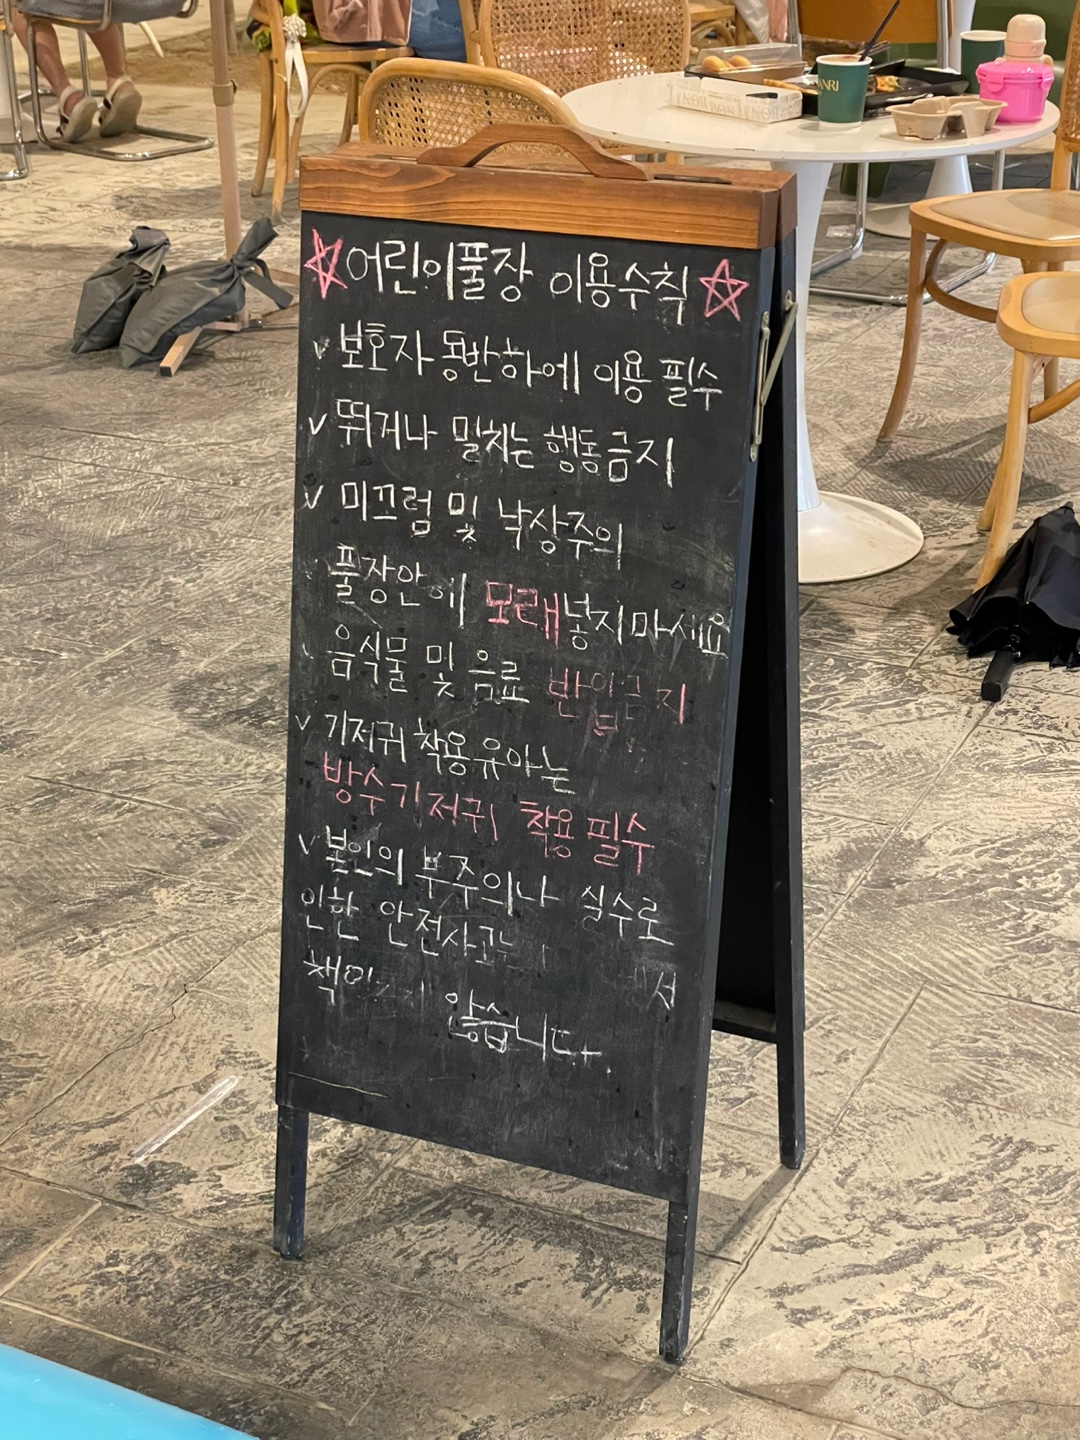 어린이풀장 이용수칙
v 보호자 동반하에 이용 필수
v 뛰거나 밀치는 행동금지
v 미끄럼 및 낙상주의
풀장안에 모래넣지마세요
음식물 및 음료 반입금지
v 기저귀 착용유아는
방수기저귀 착용 필수
v 본인의 부주의나 실수로
인한 안전사고는 서
않습니다.